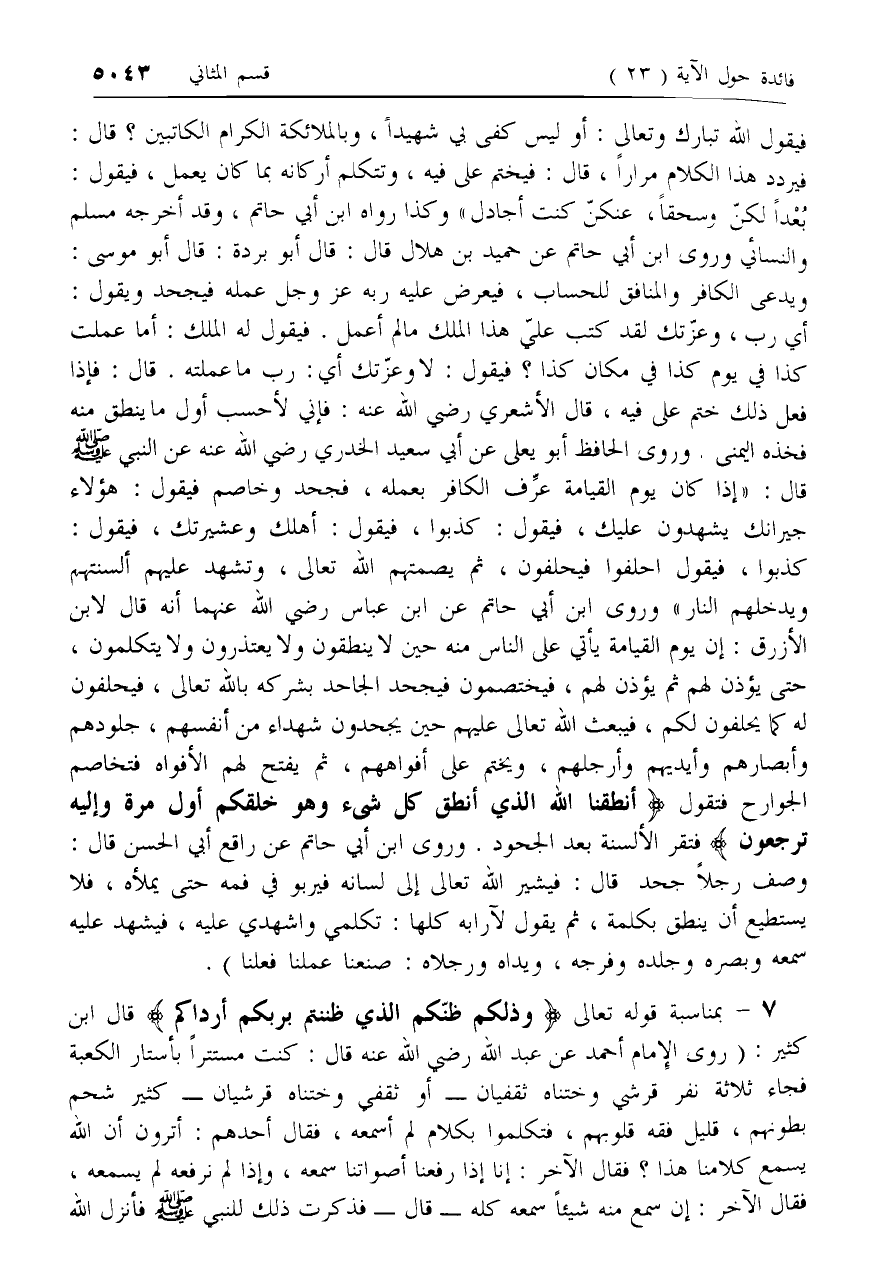 فائدة حول الآية ( ٢٣ ) قسم المثاني ٥٠٤٣
فيقول الله تبارك وتعالى : أو ليس كفى بي شهيداً ، وبالملائكة الكرام الكاتبين ؟ قال :
فيردد هذا الكلام مراراً ، قال : فيختم على فيه ، وتتكلم أركانه بما كان يعمل ، فيقول :
بُعْداً لكنّ وسحقاً ، عنكنّ كنت أجادل» وكذا رواه ابن أبي حاتم ، وقد أخرجه مسلم
والنسائي وروى ابن أبي حاتم عن حميد بن هلال قال : قال أبو بردة : قال أبو موسى :
ويدعى الكافر والمنافق للحساب ، فيعرض عليه ربه عز وجل عمله فيجحد ويقول :
أي رب ، وعزّتك لقد كتب عليّ هذا الملك مالم أعمل . فيقول له الملك : أما عملت
كذا في يوم كذا في مكان كذا ؟ فيقول : لاوعزّتك أي: رب ماعملته . قال : فإذا
فعل ذلك ختم على فيه ، قال الأشعري رضي الله عنه : فإني لأحسب أول ماينطق منه
فخذه اليمنى . وروى الحافظ أبو يعلى عن أبي سعيد الخدري رضي الله عنه عن النبي ﷺ
قال : «إذا كان يوم القيامة عرِّف الكافر بعمله ، فجحد وخاصم فيقول : هؤلاء
جيرانك يشهدون عليك ، فيقول : كذبوا ، فيقول : أهلك وعشيرتك ، فيقول :
كذبوا ، فيقول احلفوا فيحلفون ، ثم يصمتهم الله تعالى ، وتشهد عليهم ألسنتهم
ويدخلهم النار» وروى ابن أبي حاتم عن ابن عباس رضي الله عنهما أنه قال لابن
الأزرق : إن يوم القيامة يأتي على الناس منه حين لاينطقون ولايعتذرون ولايتكلمون ،
حتى يؤذن لهم ثم يؤذن لهم ، فيختصمون فيجحد الجاحد بشركه بالله تعالى ، فيحلفون
له كما يحلفون لكم ، فيبعث الله تعالى عليهم حين يجحدون شهداء من أنفسهم ، جلودهم
وأبصارهم وأيديهم وأرجلهم ، ويختم على أفواههم ، ثم يفتح لهم الأفواه فتخاصم
الجوارح فتقول ﴿ أنطقنا الله الذي أنطق كل شىء وهو خلقكم أول مرة وإليه
ترجعون ﴾ فتقر الألسنة بعد الجحود . وروى ابن أبي حاتم عن رافع أبي الحسن قال :
وصف رجلاً جحد قال : فيشير الله تعالى إلى لسانه فيربو في فمه حتى يملأه ، فلا
يستطيع أن ينطق بكلمة ، ثم يقول لآرابه كلها : تكلمي واشهدي عليه ، فيشهد عليه
سمعه وبصره وجلده وفرجه ، ويداه ورجلاه : صنعنا عملنا فعلنا ) .
٧ – بمناسبة قوله تعالى ﴿ وذلكم ظنّكم الذي ظننتم بربكم أرداكم ﴾ قال ابن
كثير : ( روى الإمام أحمد عن عبد الله رضي الله عنه قال : كنت مستتراً بأستار الكعبة
فجاء ثلاثة نفر قرشي وختناه ثقفيان ــ أو ثقفي وختناه قرشيان ــ كثير شحم
بطونهم ، قليل فقه قلوبهم ، فتكلموا بكلام لم أسمعه ، فقال أحدهم : أترون أن الله
يسمع كلامنا هذا ؟ فقال الآخر : إنا إذا رفعنا أصواتنا سمعه ، وإذا لم نرفعه لم يسمعه ،
فقال الآخر : إن سمع منه شيئاً سمعه كله ــ قال ــ فذكرت ذلك للنبي ﷺ فأنزل الله